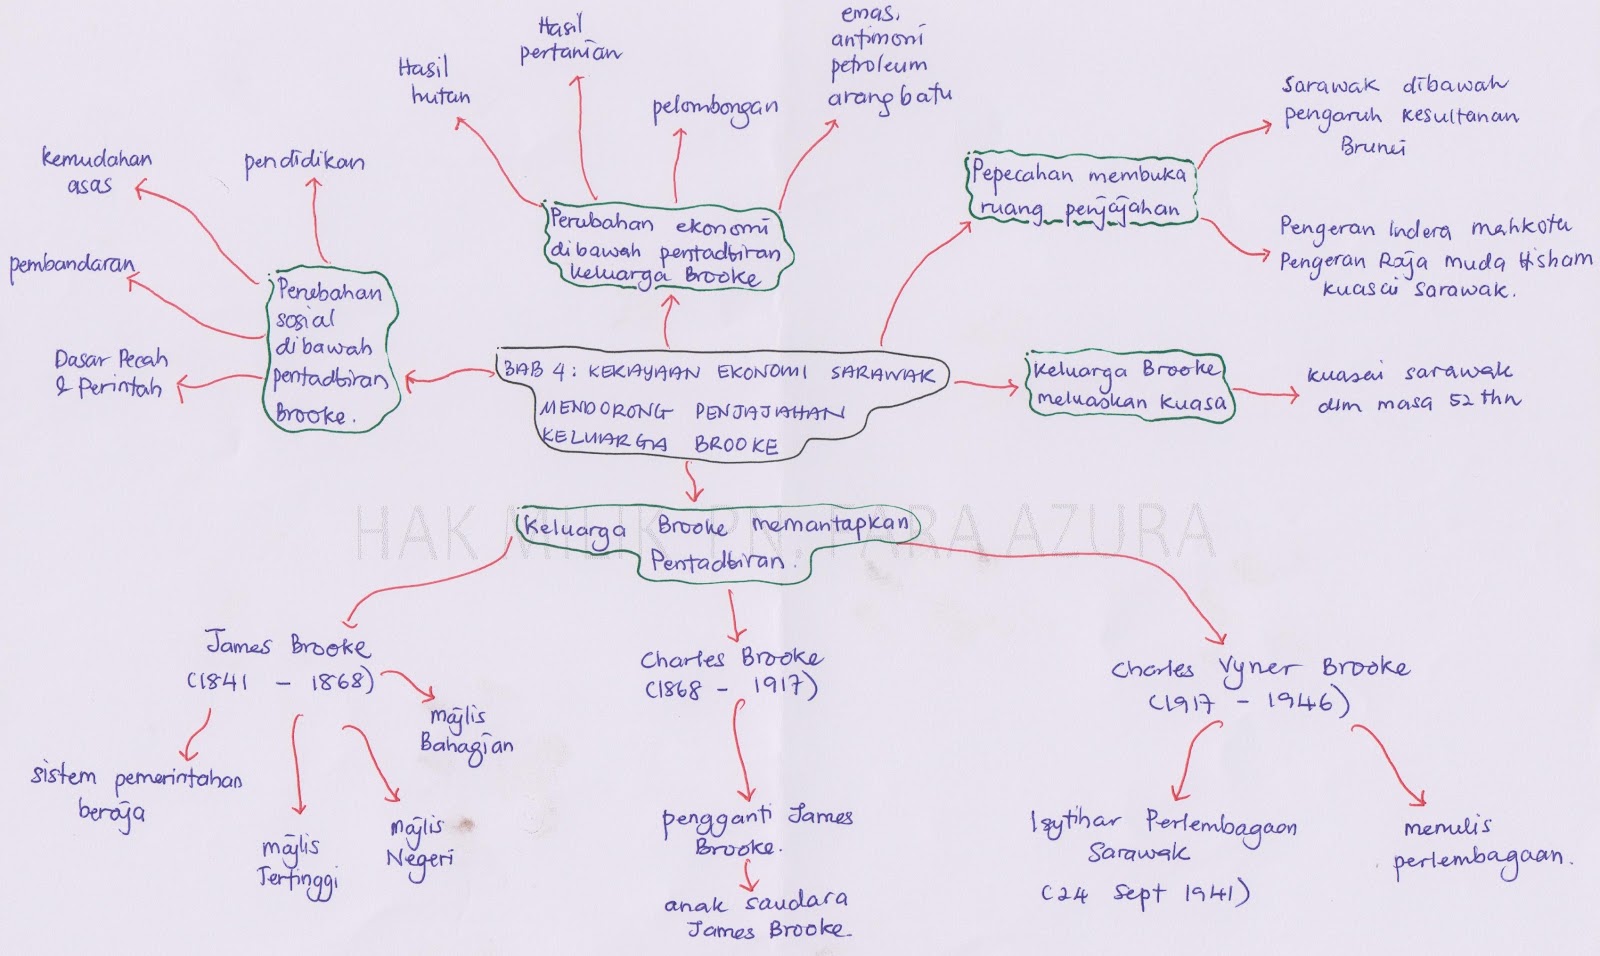 Hasil
pertanian
emas,
antimoni
petroleum
arang batu
Hasil
hutan
pelombongan
Sarawak dibawah
pengaruh Kesultanan
Brunei
kemudahan
asas
pendidikan
Pepecahan membuka
ruang penjajahan
Perubahan ekonomi
dibawah pentadbiran
keluarga Brooke
Pengeran Indera mahkota
Pengeran Raja muda Hisham
kuasai Sarawak.
pembandaran
Perubahan
sosial
dibawah
pentadbiran
Brooke.
Dasar Pecah
& Perintah
BAB 4: KEKAYAAN EKONOMI SARAWAK
MENDORONG PENJAJAHAN
KELUARGA BROOKE
Keluarga Brooke
meluaskan kuasa
kuasai sarawak
dlm masa 52 thn
HAK MILIK PN. FARA AZURA
Keluarga Brooke memantapkan
Pentadbiran.
James Brooke
(1841 - 1868)
Charles Brooke
(1868 - 1917)
Charles Vyner Brooke
(1917 - 1946)
majlis
Bahagian
sistem pemerintahan
beraja
majlis
Tertinggi
majlis
Negeri
pengganti James
Brooke.
anak saudara
James Brooke.
Isytihar Perlembagaan
Sarawak
(24 Sept 1941)
menulis
perlembagaan.